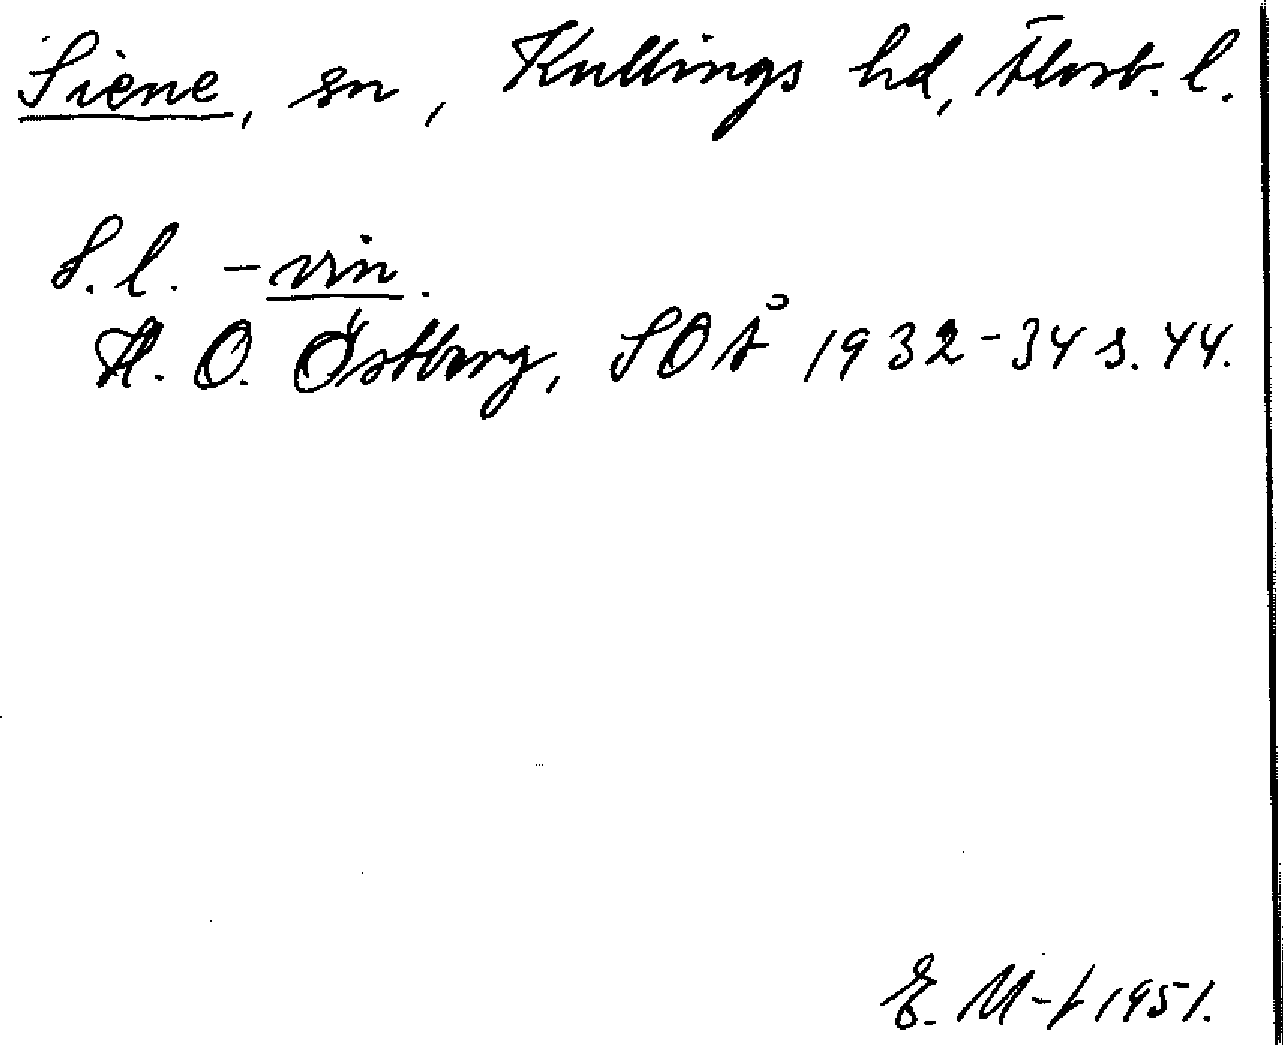 Siene, sn, Kullings hd, Älvsb. l.
S. l. -vin.
H. O. Östberg, SOÅ 1932-34 s. 44.
E. M-f 1951.